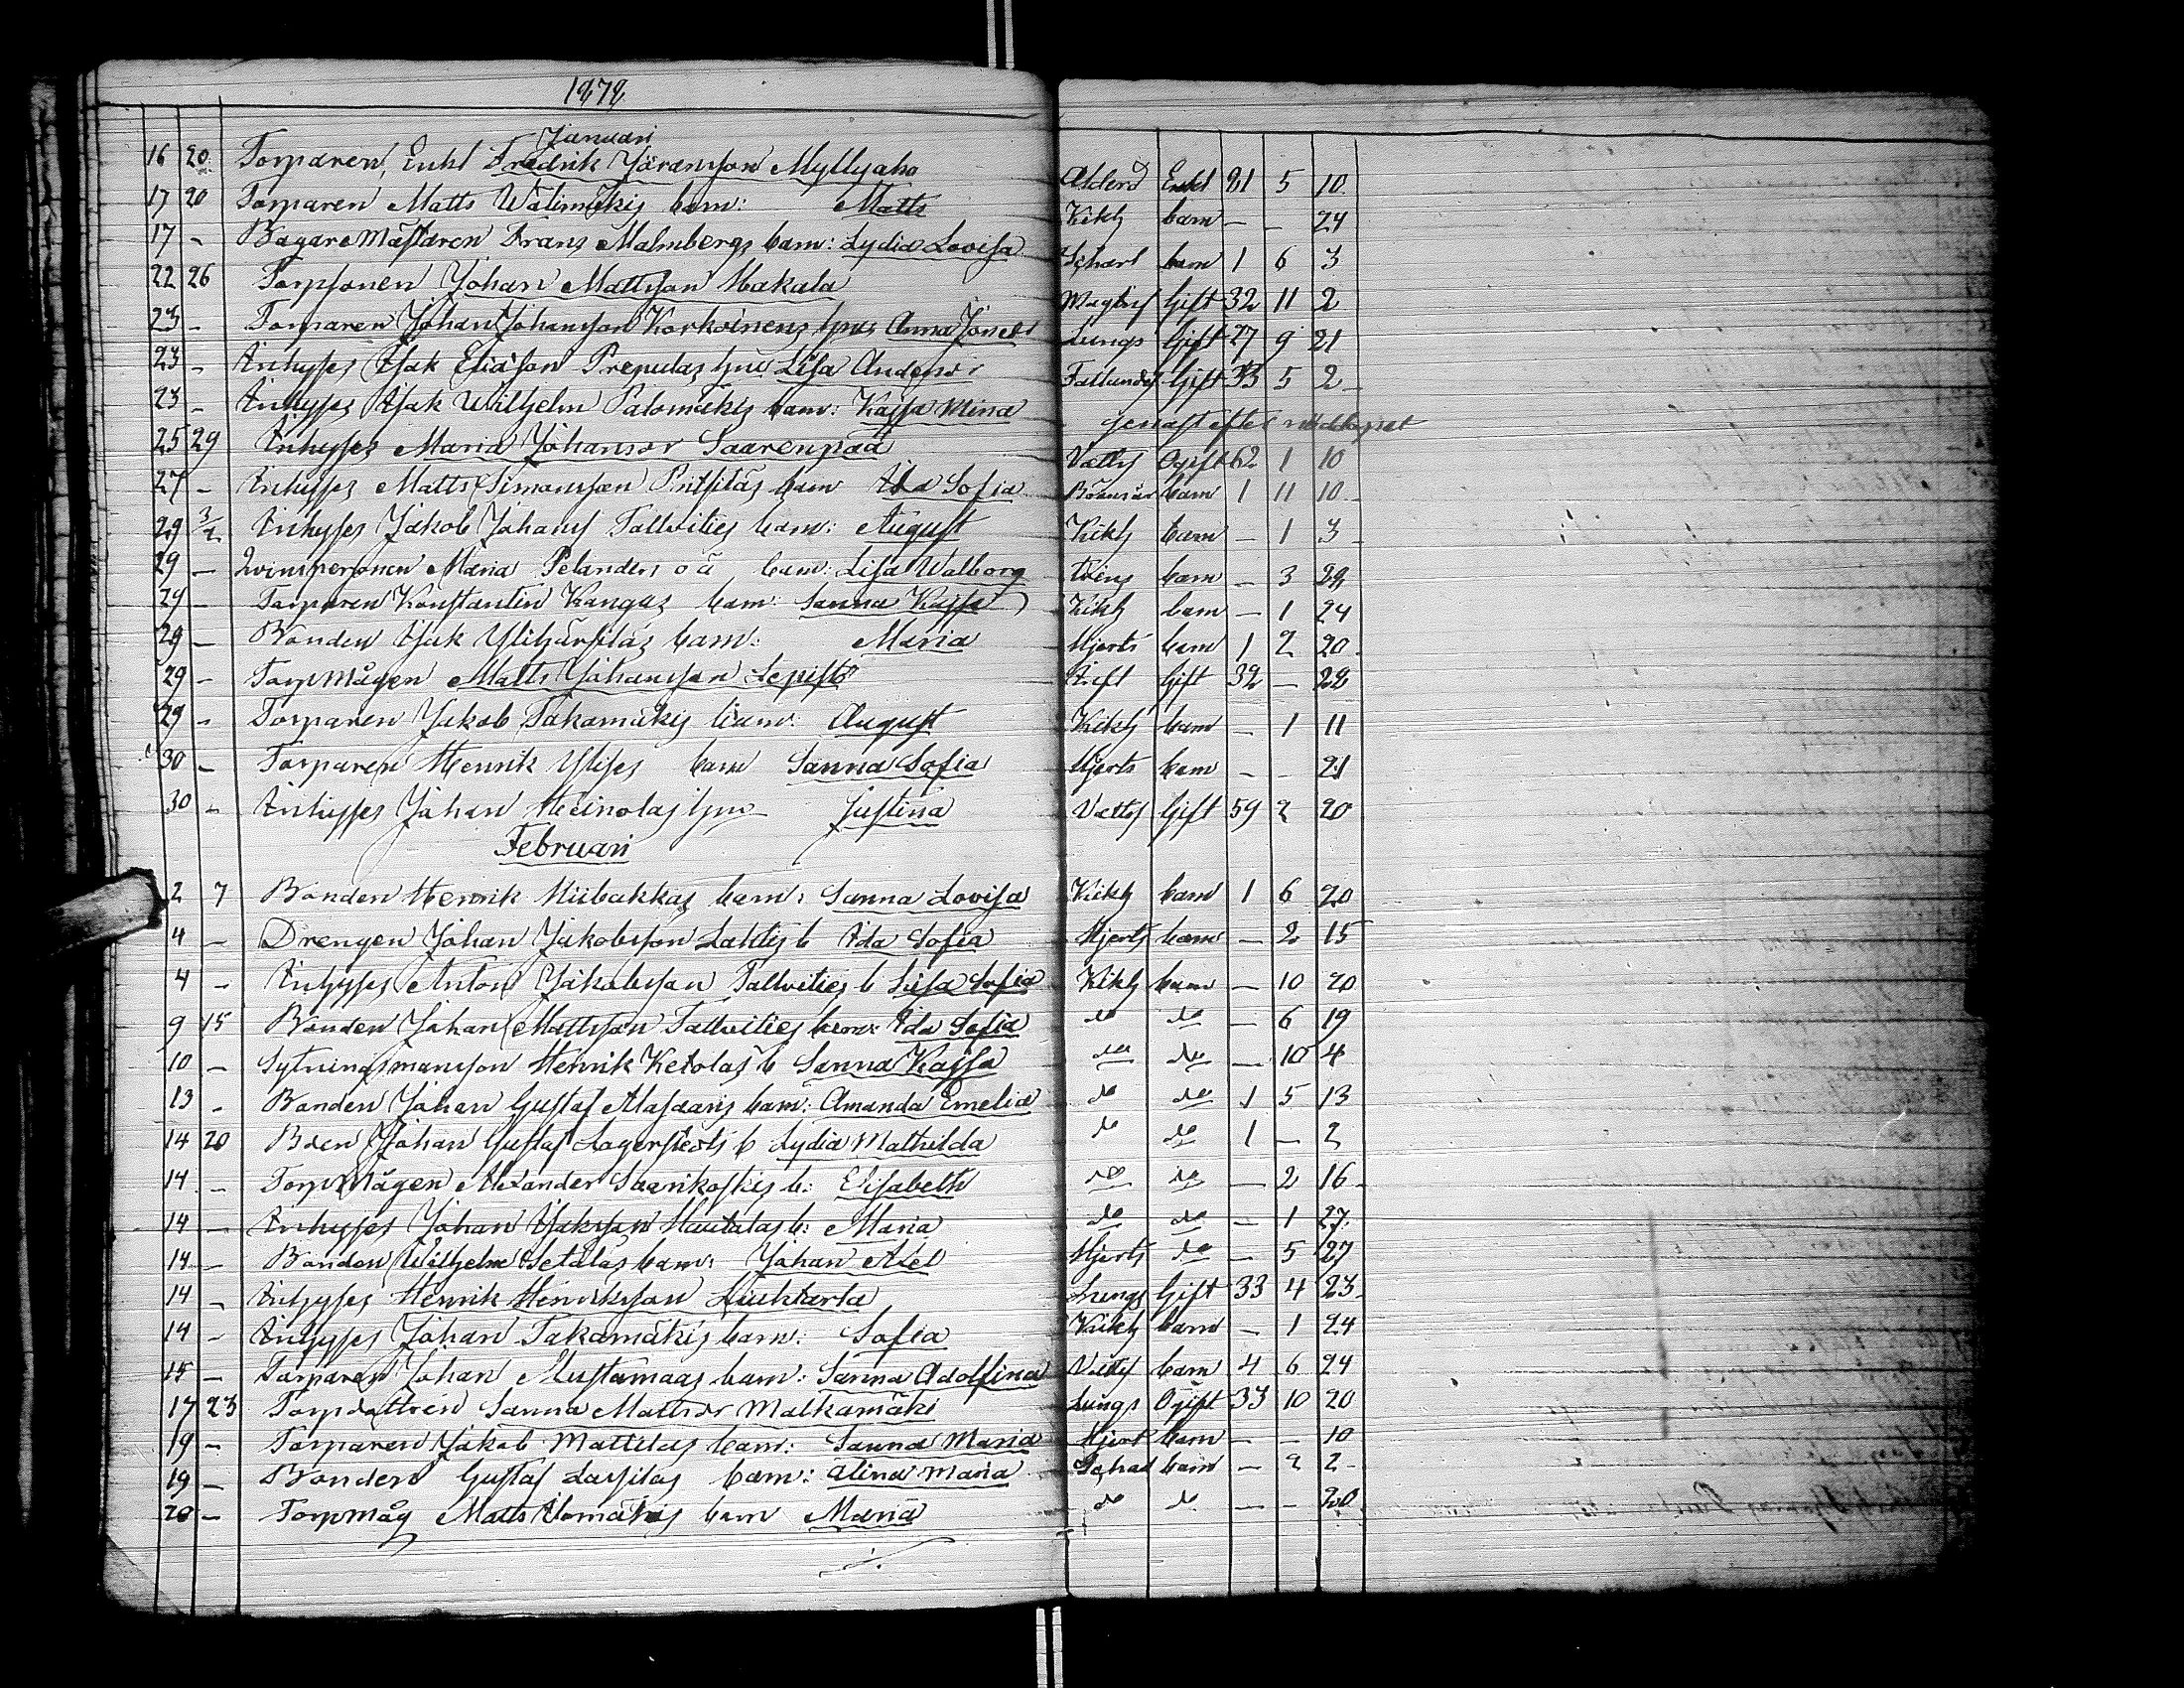 1878
Januari
16 20 Torparen, Enkl Fredrik Jöransson Myllyaho Ålderd Enkl 81 5 10
17 20 Torparen Matts Wälimäkis barn: Matts Kikh barn — — 24
17 — Bagaremästaren Frans Malmbergs barn: Lydia Lovisa Scharl barn 1 6 3
22 26 Torpsonen Johan Mattsson Hakala Magtyf Gift 32 11 2
23 — Torparen Johan Johansson Korkoinens hu Anna Jonesd Lungs Gift 27 9 21
23 — Inhyses Isak Eliasson Prepulas hu Lisa Andersdr Gift 33 5 2
23 — Inhyses Isak Wilhelm Palomäkis barn: Kajsa Mina genast efter nöddopet
25 29 Inhyses Maria Johansdr Saarenpää Vatts Ogift 62 1 10
27 — Inhyses Matts Simonsson barn Ida Sofia barn 1 11 10
29 3/2 Inhyses Jakob Johans Tallvities barn: August Kikh barn — 1 3
29 — Qvinspersonen Maria Pelanders oä barn: Lisa Walborg barn — 3 28
29 — Torparen Konstantin Kangas barn: Sanna Kajsa Kikh barn — 1 24
29 — Bonden Isak Ylihärsilas barn: Maria Hjerts barn 1 2 20
29 — Torpmågen Matts Johansson Lepistö Gift 32 — 22
29 — Torparen Jakob Takamäkis barn: August Kikh barn — 1 11
30 — Torparen Henrik Ylises barn Sanna Sofia Hjerts barn — — 21
30 — Inhyses Johan Heinolas hu Justina Vatts Gift 59 2 20
Februari
2 7 Bonden Henrik Niibakkas barn: Sanna Lovisa Kikh barn 1 6 20
4 — Drengen Johan Jakobsson Lahtis b Ida Sofia Hjerts barn — 2 15
4 — Inhyses Anton Jakobsson Tallvities b Lisa Sofia Kikh barn — 10 20
9 15 Bonden Johan Mattsson Tallvities barn: Ida Sofia do do — 6 19
10 — Sytningsmansson Henrik Ketolas b Sanna Kajsa do do — 10 4
13 — Bonden Johan Gustaf Alasaaris barn: Amanda Emelia do do 1 5 13
14 20 Bden Johan Gustaf Lagerstedts b Lydia Mathilda do do 1 — 2
14 — Torpmågen Alexander Saarikoskis b: Elisabeth do do — 2 16
14 — Inhyses Johan Isaksson Hautalas b: Maria do do — 1 27
14 — Bonden Wilhelm Isetalas barn: Johan Axel Hjerts do — 5 27
14 — Inhyses Henrik Henriksson Liuhtarla Lungs Gift 33 4 23
14 — Inhyses Johan Takamäkis barn: Sofia Kikh barn — 1 24
15 — Torparen Johan Mustamaas barn: Sanna Adolfina Vatts barn 4 6 24
17 23 Torpdottren Sanna Mattsdr Malkamäki Lungs Ogift 33 10 20
19 — Torparen Jakob Mattilas barn: Sanna Maria Hjert barn — — 10
19 — Bonden Gustaf Lassilas barn: Alina Maria Schal barn — 2 2
20 — Torpmåg Matts barn Maria do do — — 20